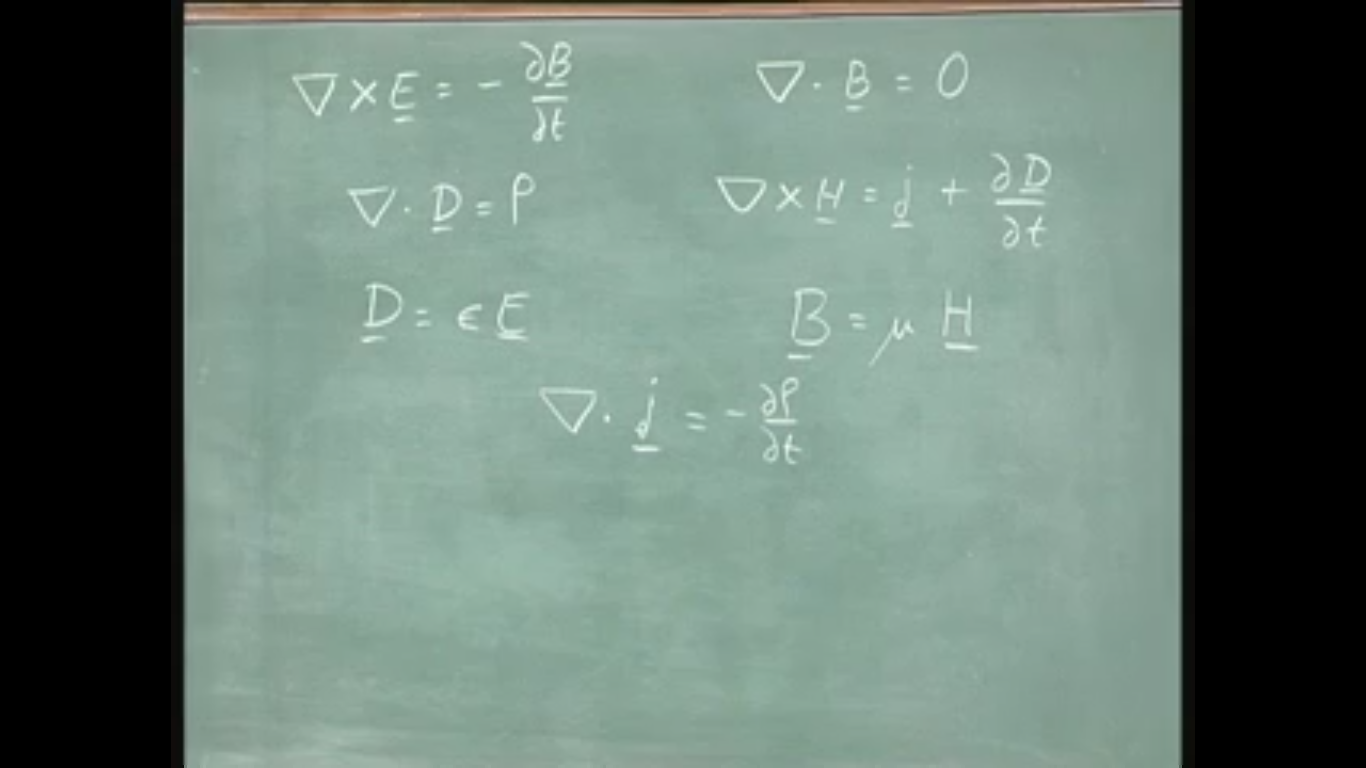 ∇ × E = - ∂B/∂t
∇ · B = 0
∇ · D = ρ
∇ × H = j + ∂D/∂t
D = ϵ E
B = μ H
∇ · j = - ∂ρ/∂t